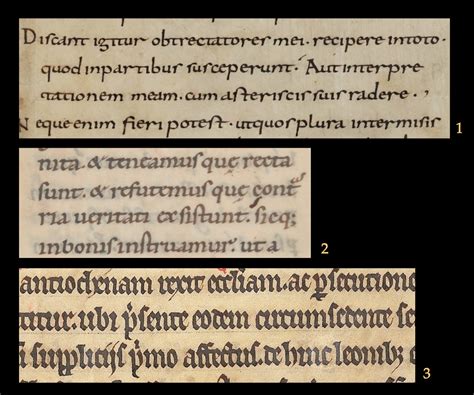 Discant igitur obtrectatores mei · recipere intoto ·
quod inpartibus susceperunt · Aut interpre
tationem meam · cum asteriscis suis radere ·,
Neque enim fieri potest · ut quos plura intermisis
1
nita · & teneamus quę recta
sunt · & refutemus quę cont̄
ria ueritati exsistunt · sicq;
inbonis instruamur · ut a
2
antiochenam rexit eccl̄iam · ac p̄secutione
titur · ubi p̄sente eodem circumsedente se
i suppliciis p̄mo affectus · dehinc leonib;
3